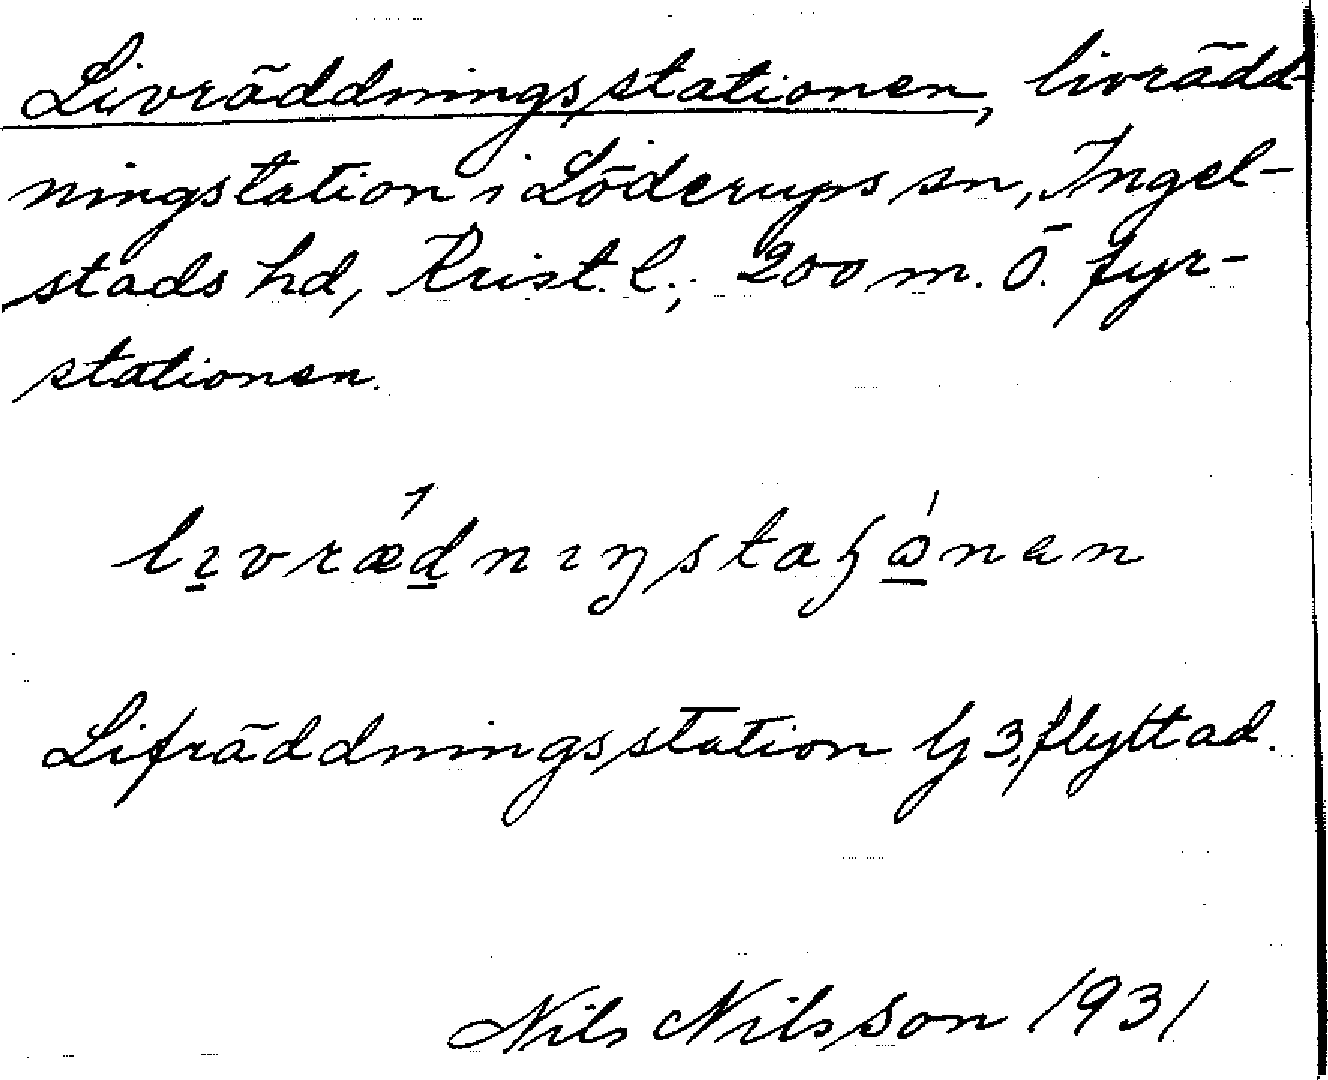 Livräddningsstationen, livrädd-
ningstation i Löderups sn, Ingel-
stads hd, Krist. l.; 200 m. Ö. fyr-
stationen.
livrædnıŋstaʃɷ́nen
Lifräddningsstation bj 3, flyttad.
Nils Nilsson 1931